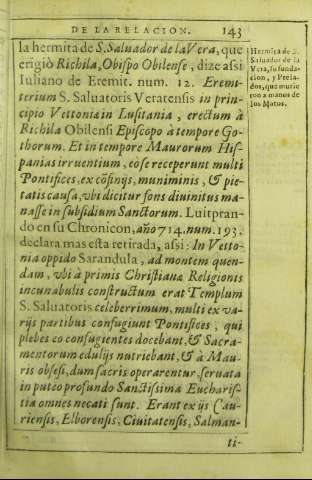 DE LA RELACION. 143
la hermita de S. Saluador de la Vera, que
erigiò Richila, Obispo Obilense, dize assi
Iuliano de Eremit. num. 12. Eremi-
terium S. Saluatoris Veratensis in prin-
cipio Vettonia in Lusitania, erectum à
Richila Obilensi Episcopo à tempore Go-
thorum. Et in tempore Maurorum His-
panias irruentium, eò se receperunt multi
Pontifices, ex cõfinijs, muniminis, & pie-
tatis causa, vbi dicitur fons diuinitus ma-
nasse in subsidium Sanctorum. Luitpran-
do en su Chronicon, año 714. num. 193.
declara mas esta retirada, assi: In Vetto-
nia oppido Sarandula, ad montem quen-
dam, vbi à primis Christiauæ Religionis
incunabulis constructum erat Templum
S. Saluatoris celeberrimum, multi ex va-
rijs partibus confugiunt Pontifices, qui
plebes eo confugientes docebant, & Sacra-
mentorum edulijs nutriebant, & à Mau-
ris obsesi, dum sacris operarentur, seruata
in puteo profundo Sanctissima Eucharis-
tia omnes necati sunt. Erant ex ijs Cau-
riensis, Elborensis, Ciuitatensis, Salman-
ti-
Hermita de S.
Saluador de la
Vera, su funda-
cion, y Prela-
dos, que murie
ron a manos de
los Moros.